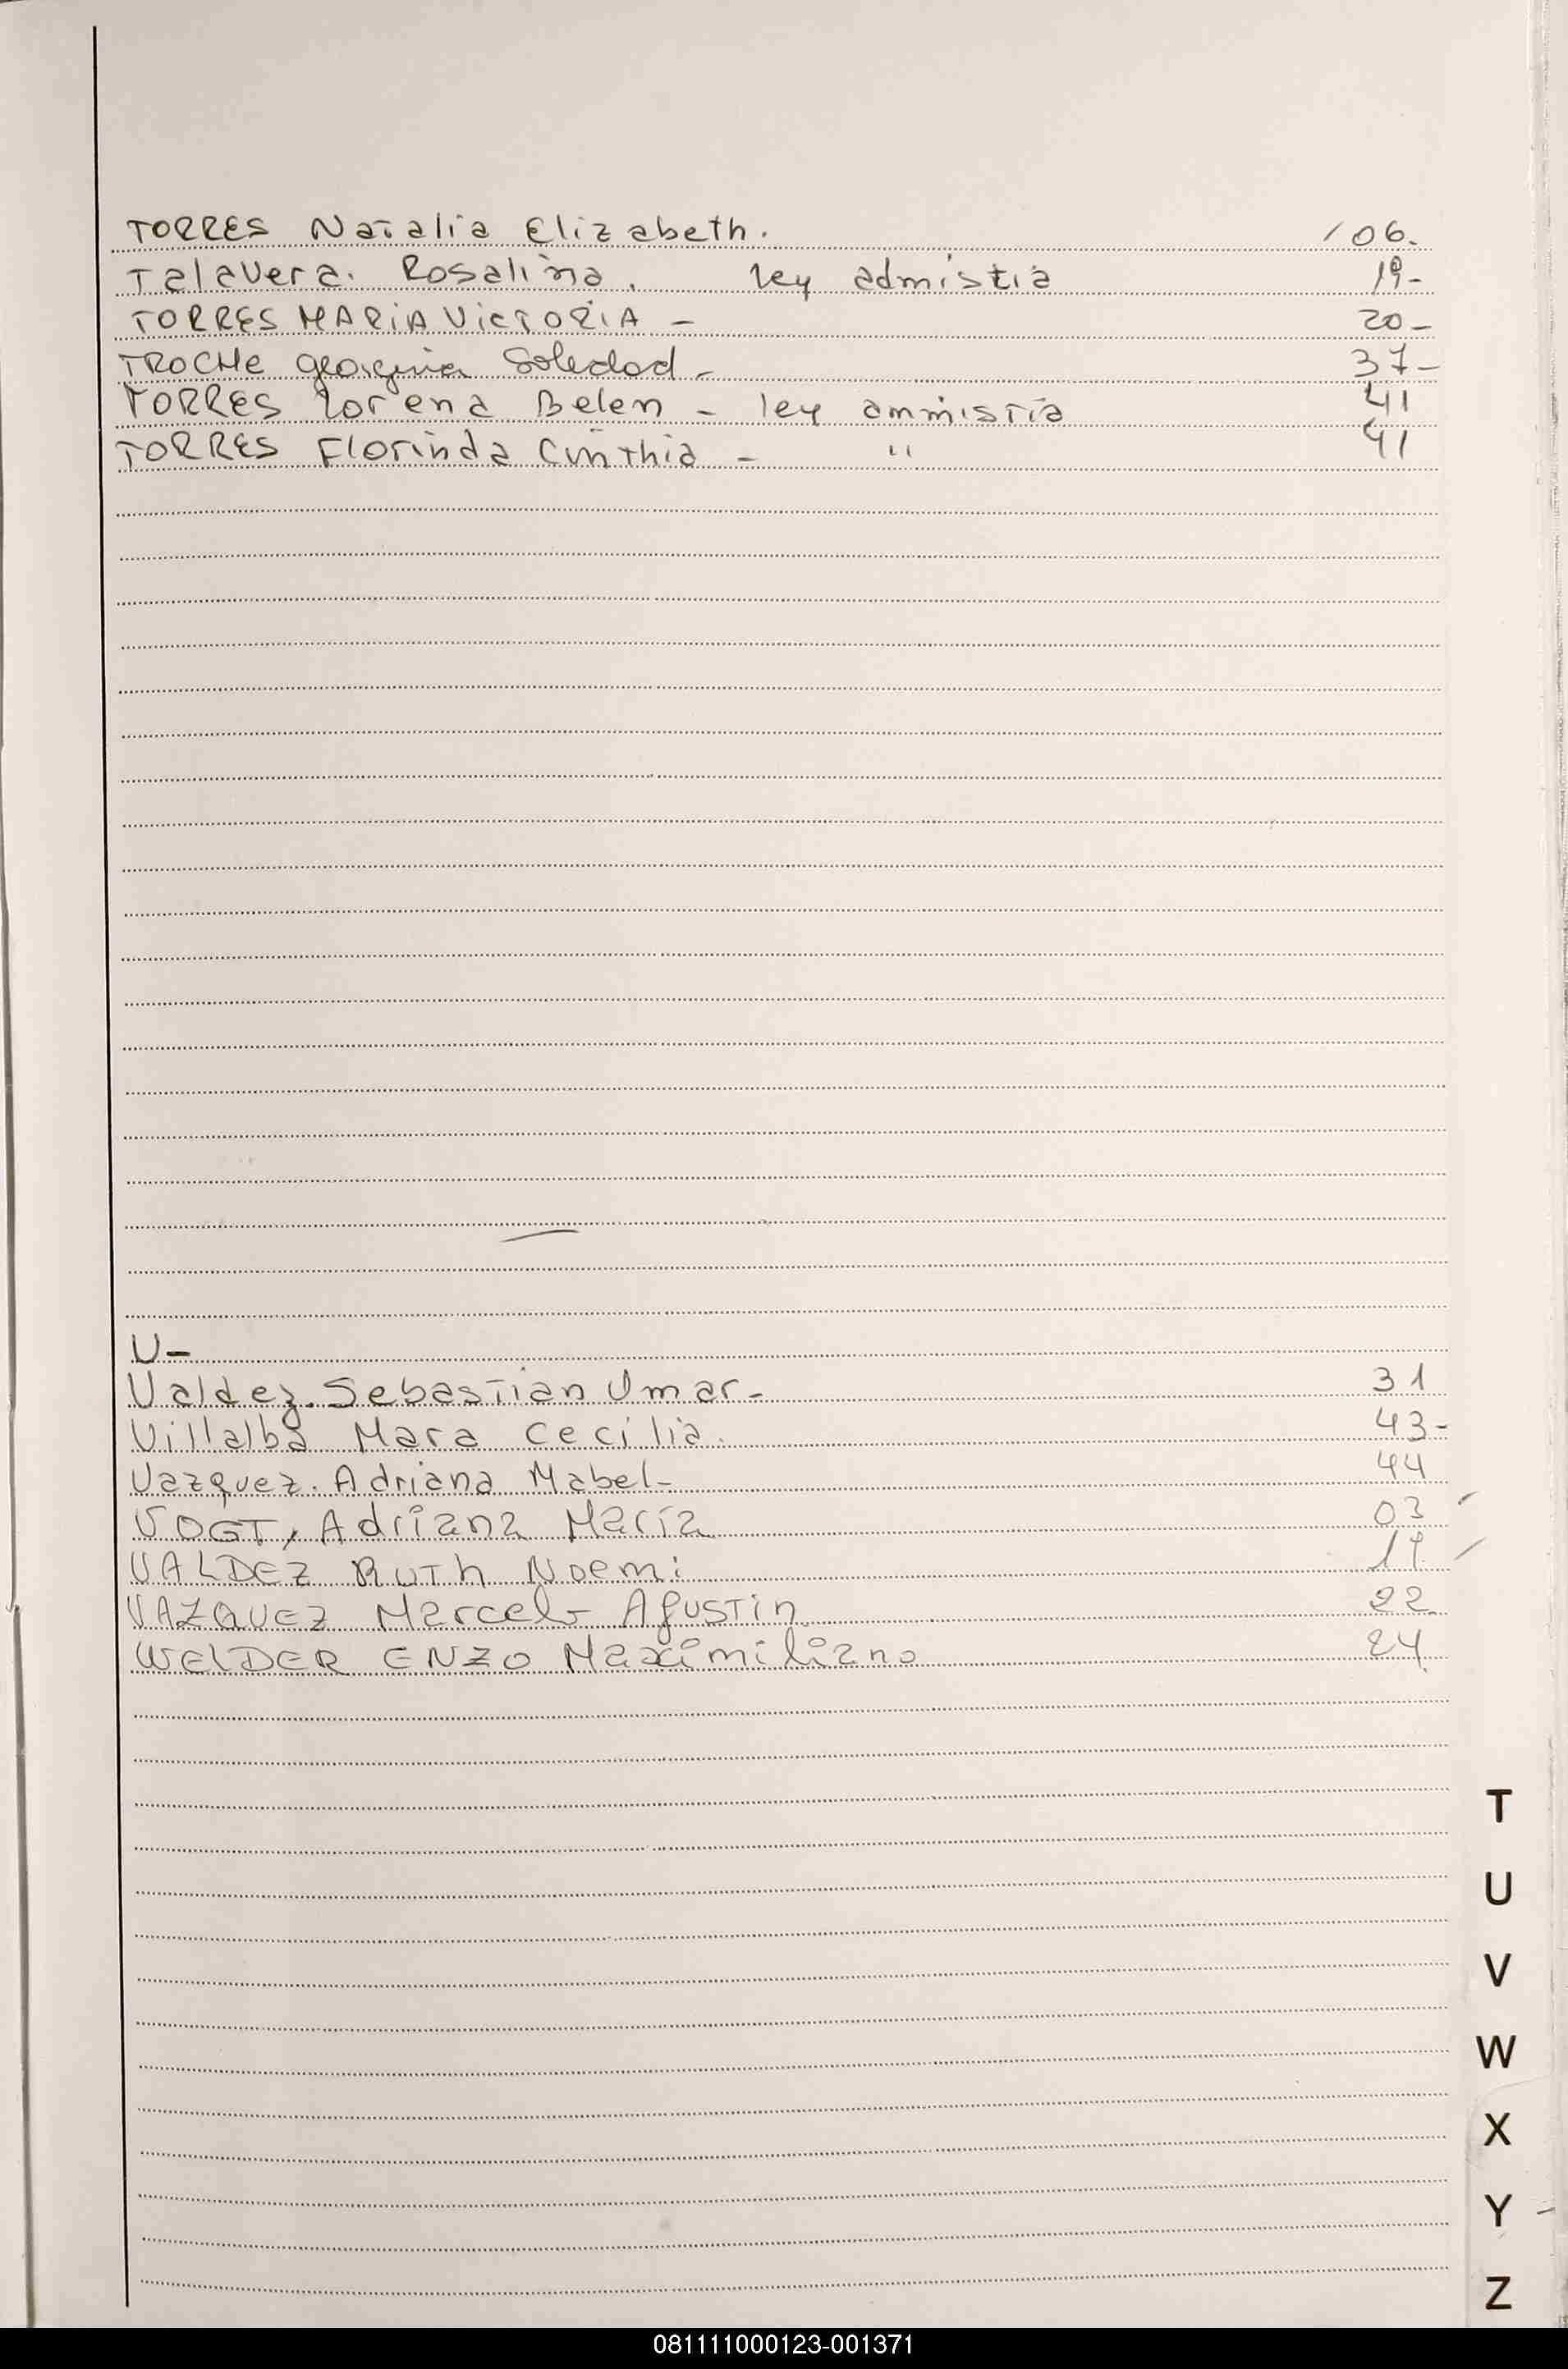 TORRES Natalia Elizabeth. / 06.
Talavera. Rosalina. ley admistia 19-
TORRES MARIA VICTORIA - 20-
TROCHE Georgina Soledad - 37-
TORRES Lorena Belen - ley ammistia 41
TORRES Florinda Cinthia - " 41
V-
Valdez. Sebastian Omar - 31
Villalba Mara Cecilia. 43-
Vazquez. Adriana Mabel - 44
VOGT, Adriana María 03
VALDEZ RUTH Noemi 19
VAZQUEZ Marcelo Agustin 22
WELDER ENZO Maximiliano 24
T
U
V
W
X
Y
Z
081111000123-001371